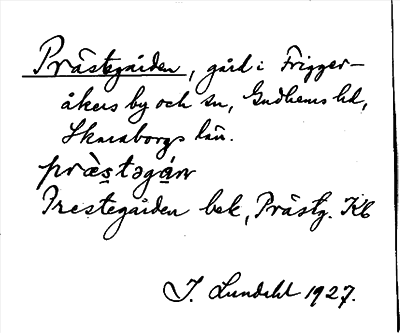 Prästegården, gård i Frigger-
åkers by och sn, Gudhems hd,
Skaraborgs län.
præ̀stəgán
Prestegården bek, Prästg. Kb
J. Lundahl 1927.